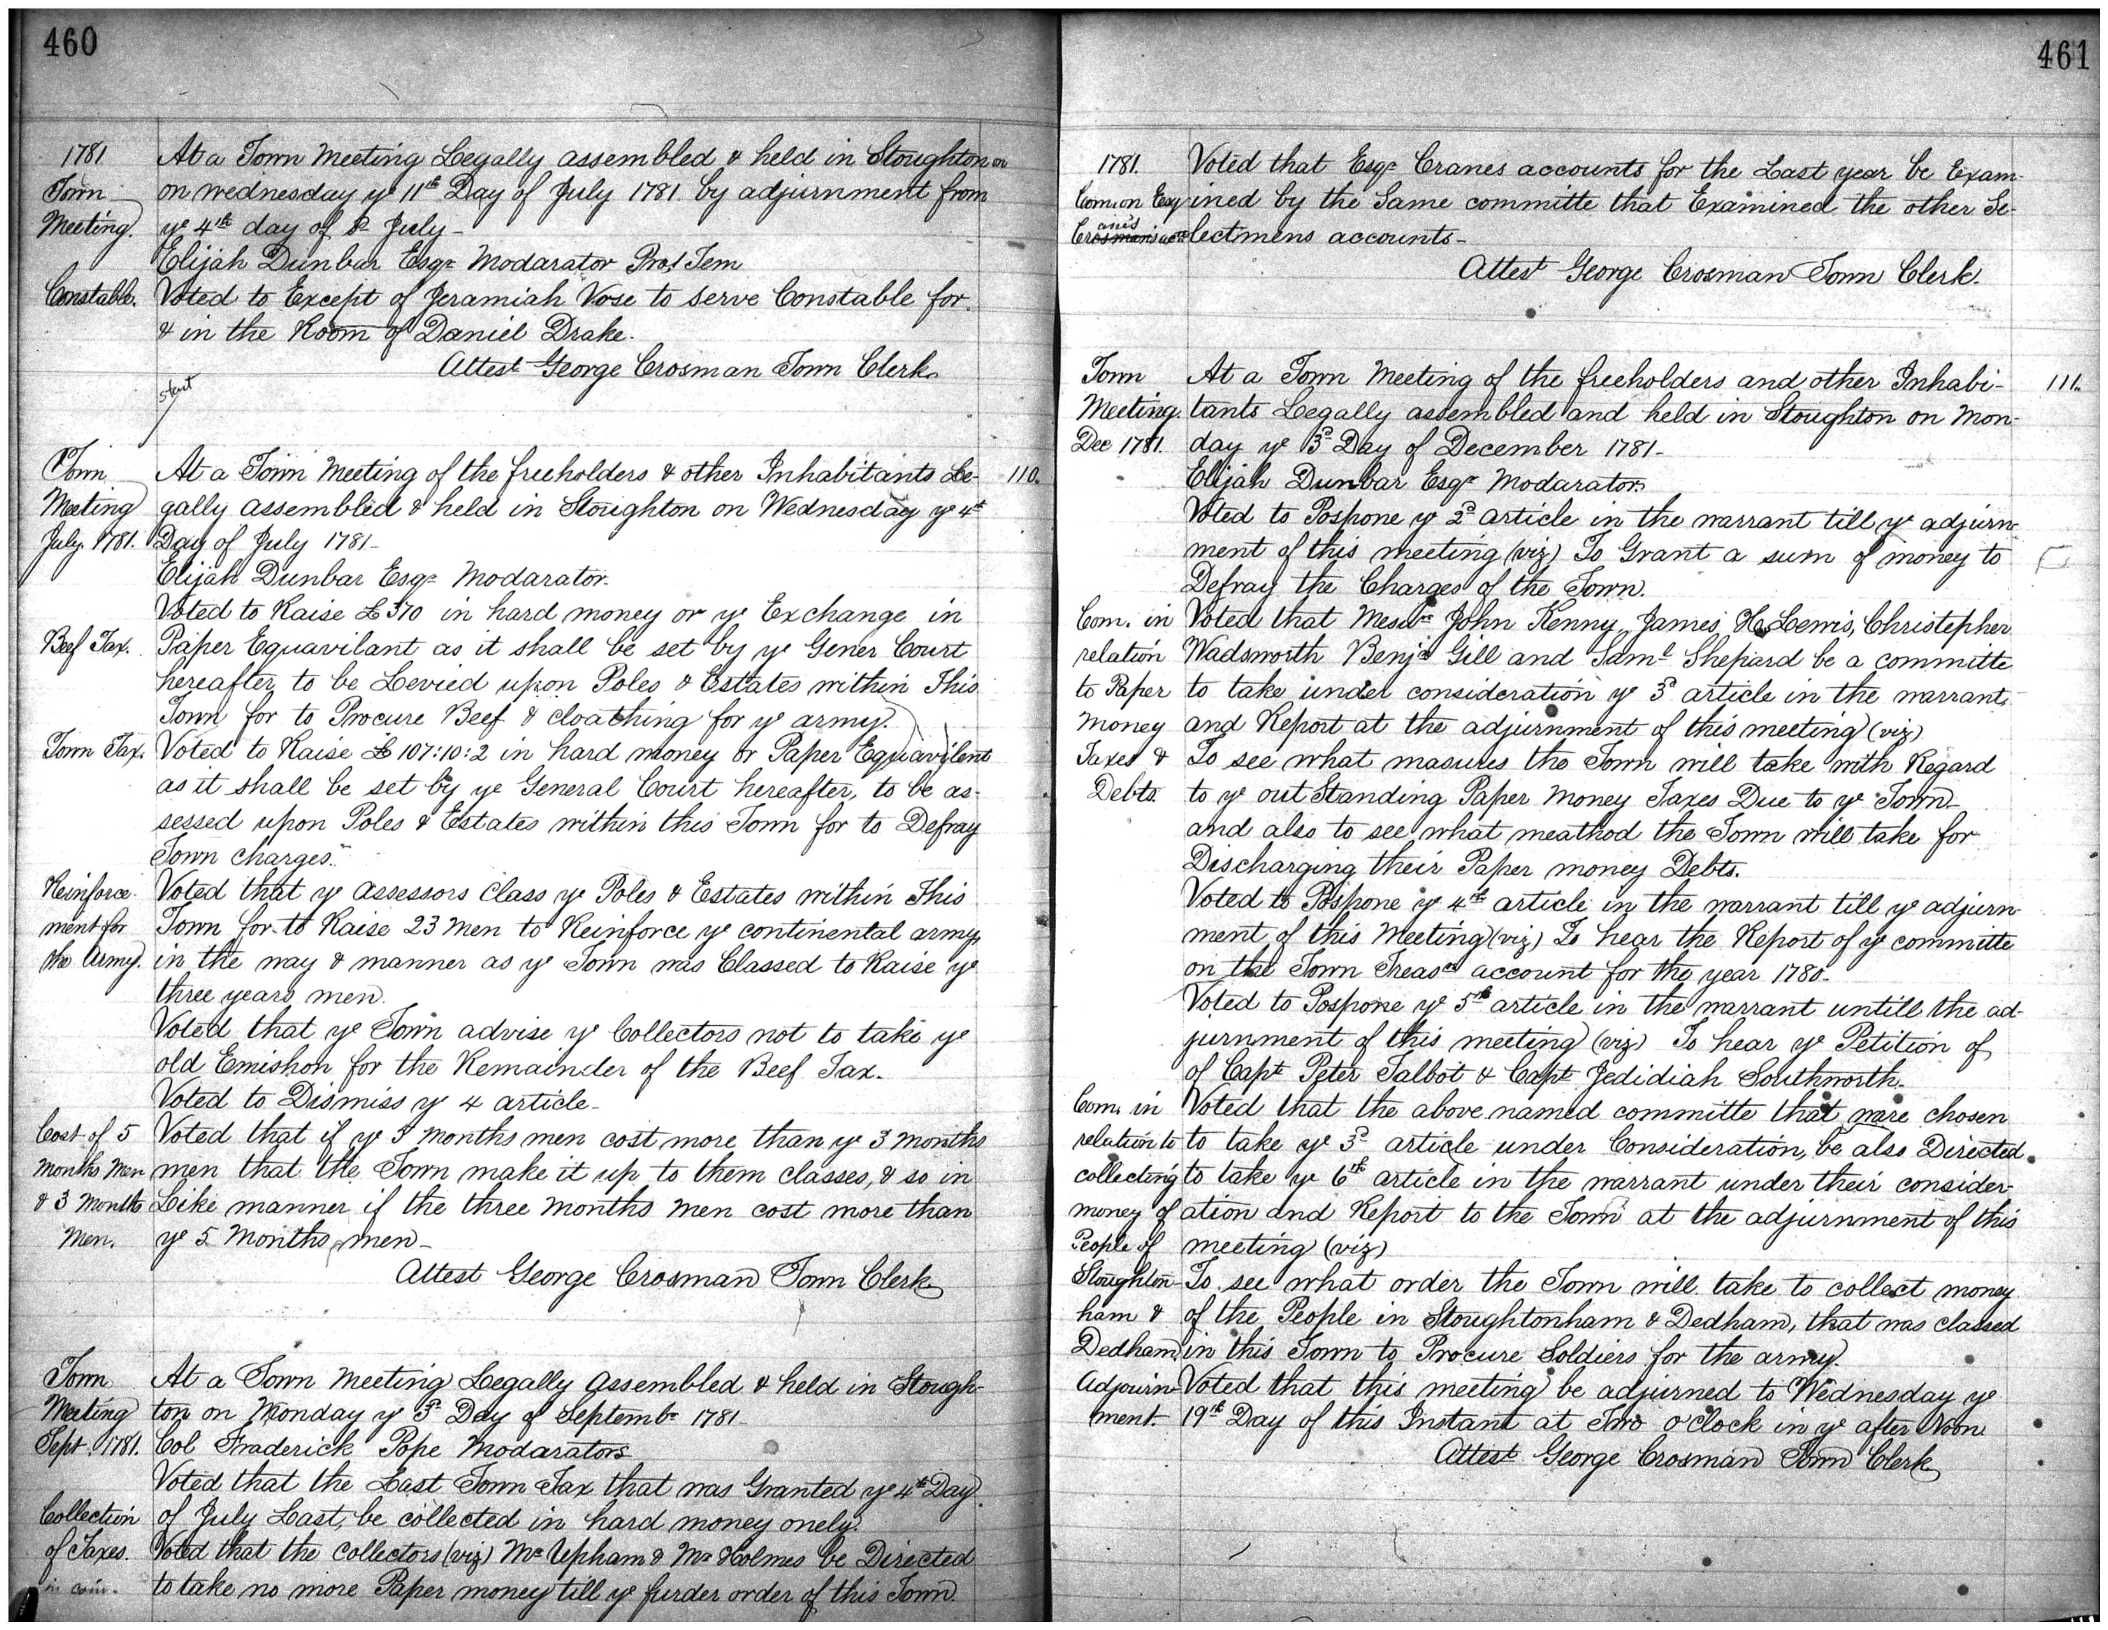 460
1781 At a Town Meeting Legally assembled & held in Stoughton on
Town on wednesday ye 11th Day of July 1781 by adjurnment from
Meeting. ye 4th day of sd July-
Elijah Dunbar Esqr Modarator Pro, Tem
Constable. Voted to Except of Jeramiah Vose to serve Constable for
& in the Room of Daniel Drake.
Attest George Crosman Town Clerk
start
Town At a Town Meeting of the freeholders & other Inhabitants Le- 110.
Meeting gally assembled & held in Stoughton on Wednesday ye 4th
July. 1781. Day of July 1781-
Elijah Dunbar Esqr Modarator.
Voted to Raise £370 in hard money or ye Exchange in
Beef Tax. Paper Equavilant as it shall be set by ye Gener Court
hereafter, to be Levied upon Poles & Estates within This
Town for to Procure Beef & cloathing for ye army.
Town Tax. Voted to Raise £107:10:2 in hard money or Paper Equavilent
as it shall be set by ye General Court hereafter, to be as-
sessed upon Poles & Estates within this Town for to Defray
Town charges.
Reinforce- Voted that ye assessors Class ye Poles & Estates within This
ment for Town for to Raise 23 Men to Reinforce ye continental army,
the Army. in the way & manner as ye Town was Classed to Raise ye
three years men.
Voted that ye Town advise ye Collectors not to take ye
old Emishon for the Remainder of the Beef Tax.
Voted to Dismiss ye 4 article-
Cost of 5 Voted that if ye 5 months men cost more than ye 3 months
Months Men men that the Town make it up to them classes, & so in
& 3 Months Like manner if the three months men cost more than
Men. ye 5 Months men-
Attest George Crosman Town Clerk
Town At a Town Meeting Legally assembled & held in Stough-
Meeting ton on Monday ye 3d Day of Septembr 1781
Sept. 1781. Col Fraderick Pope Modarators
Voted that the Last Town Tax that was Granted ye 4th Day
Collection of July Last, be collected in hard money onely.
of Taxes. Voted that the Collectors (viz) Mr Upham & Mr Holmes be Directed
in coin. to take no more Paper money till ye furder order of this Town.
461
1781. Voted that Esqr Cranes accounts for the Last year be Exam-
Com. on Esq ined by the Same committe that Examined the other Se-
Cranes acct lectmens accounts-
Attest George Crosman Town Clerk.
Town At a Town Meeting of the freeholders and other Inhabi- 111.
Meeting. tants Legally assembled and held in Stoughton on Mon-
Dec 1781. day ye 3d Day of December 1781-
Elijah Dunbar Esqr Modarator
Voted to Pospone ye 2d article in the warrant till ye adjurn-
ment of this meeting (viz) To Grant a sum of money to
Defray the Charges of the Town.
Com. in Voted that Messrs John Kenny, James H Lewis, Christepher
relation Wadsworth Benja Gill and Saml Shepard be a committe
to Paper to take under consideration ye 3d article in the warrant,
money and Report at the adjurnment of this meeting (viz)
Taxes & To see what masures the Town will take with Regard
Debts. to ye out Standing Paper Money Taxes Due to ye Town-
and also to see what meathod the Town will take for
Discharging their Paper money Debts.
Voted to Pospone ye 4th article in the warrant till ye adjurn
ment of this Meeting (viz) To hear the Report of ye committe
on the Town Treasrs account for the year 1780.
Voted to Pospone ye 5th article in the warrant untill the ad-
jurnment of this meeting (viz) To hear ye Petition of
of Capt Peter Talbot & Capt Jedidiah Southworth.
Com. in Voted that the above named committe that were chosen
relation to to take ye 3d article under Consideration, be also Directed
collecting to take ye 6th article in the warrant under their consider-
money of ation and Report to the Town at the adjurnment of this
People of meeting (viz)
Stoughton- To see what order the Town will take to collect money
ham & of the People in Stoughtonham & Dedham, that was classed
Dedham, in this Town to Procure Soldiers for the army.
Adjourn- Voted that this meeting be adjurned to Wednesday ye
ment. 19th Day of this Instant at Two o'Clock in ye after Noon
Attest George Crosman Town Clerk